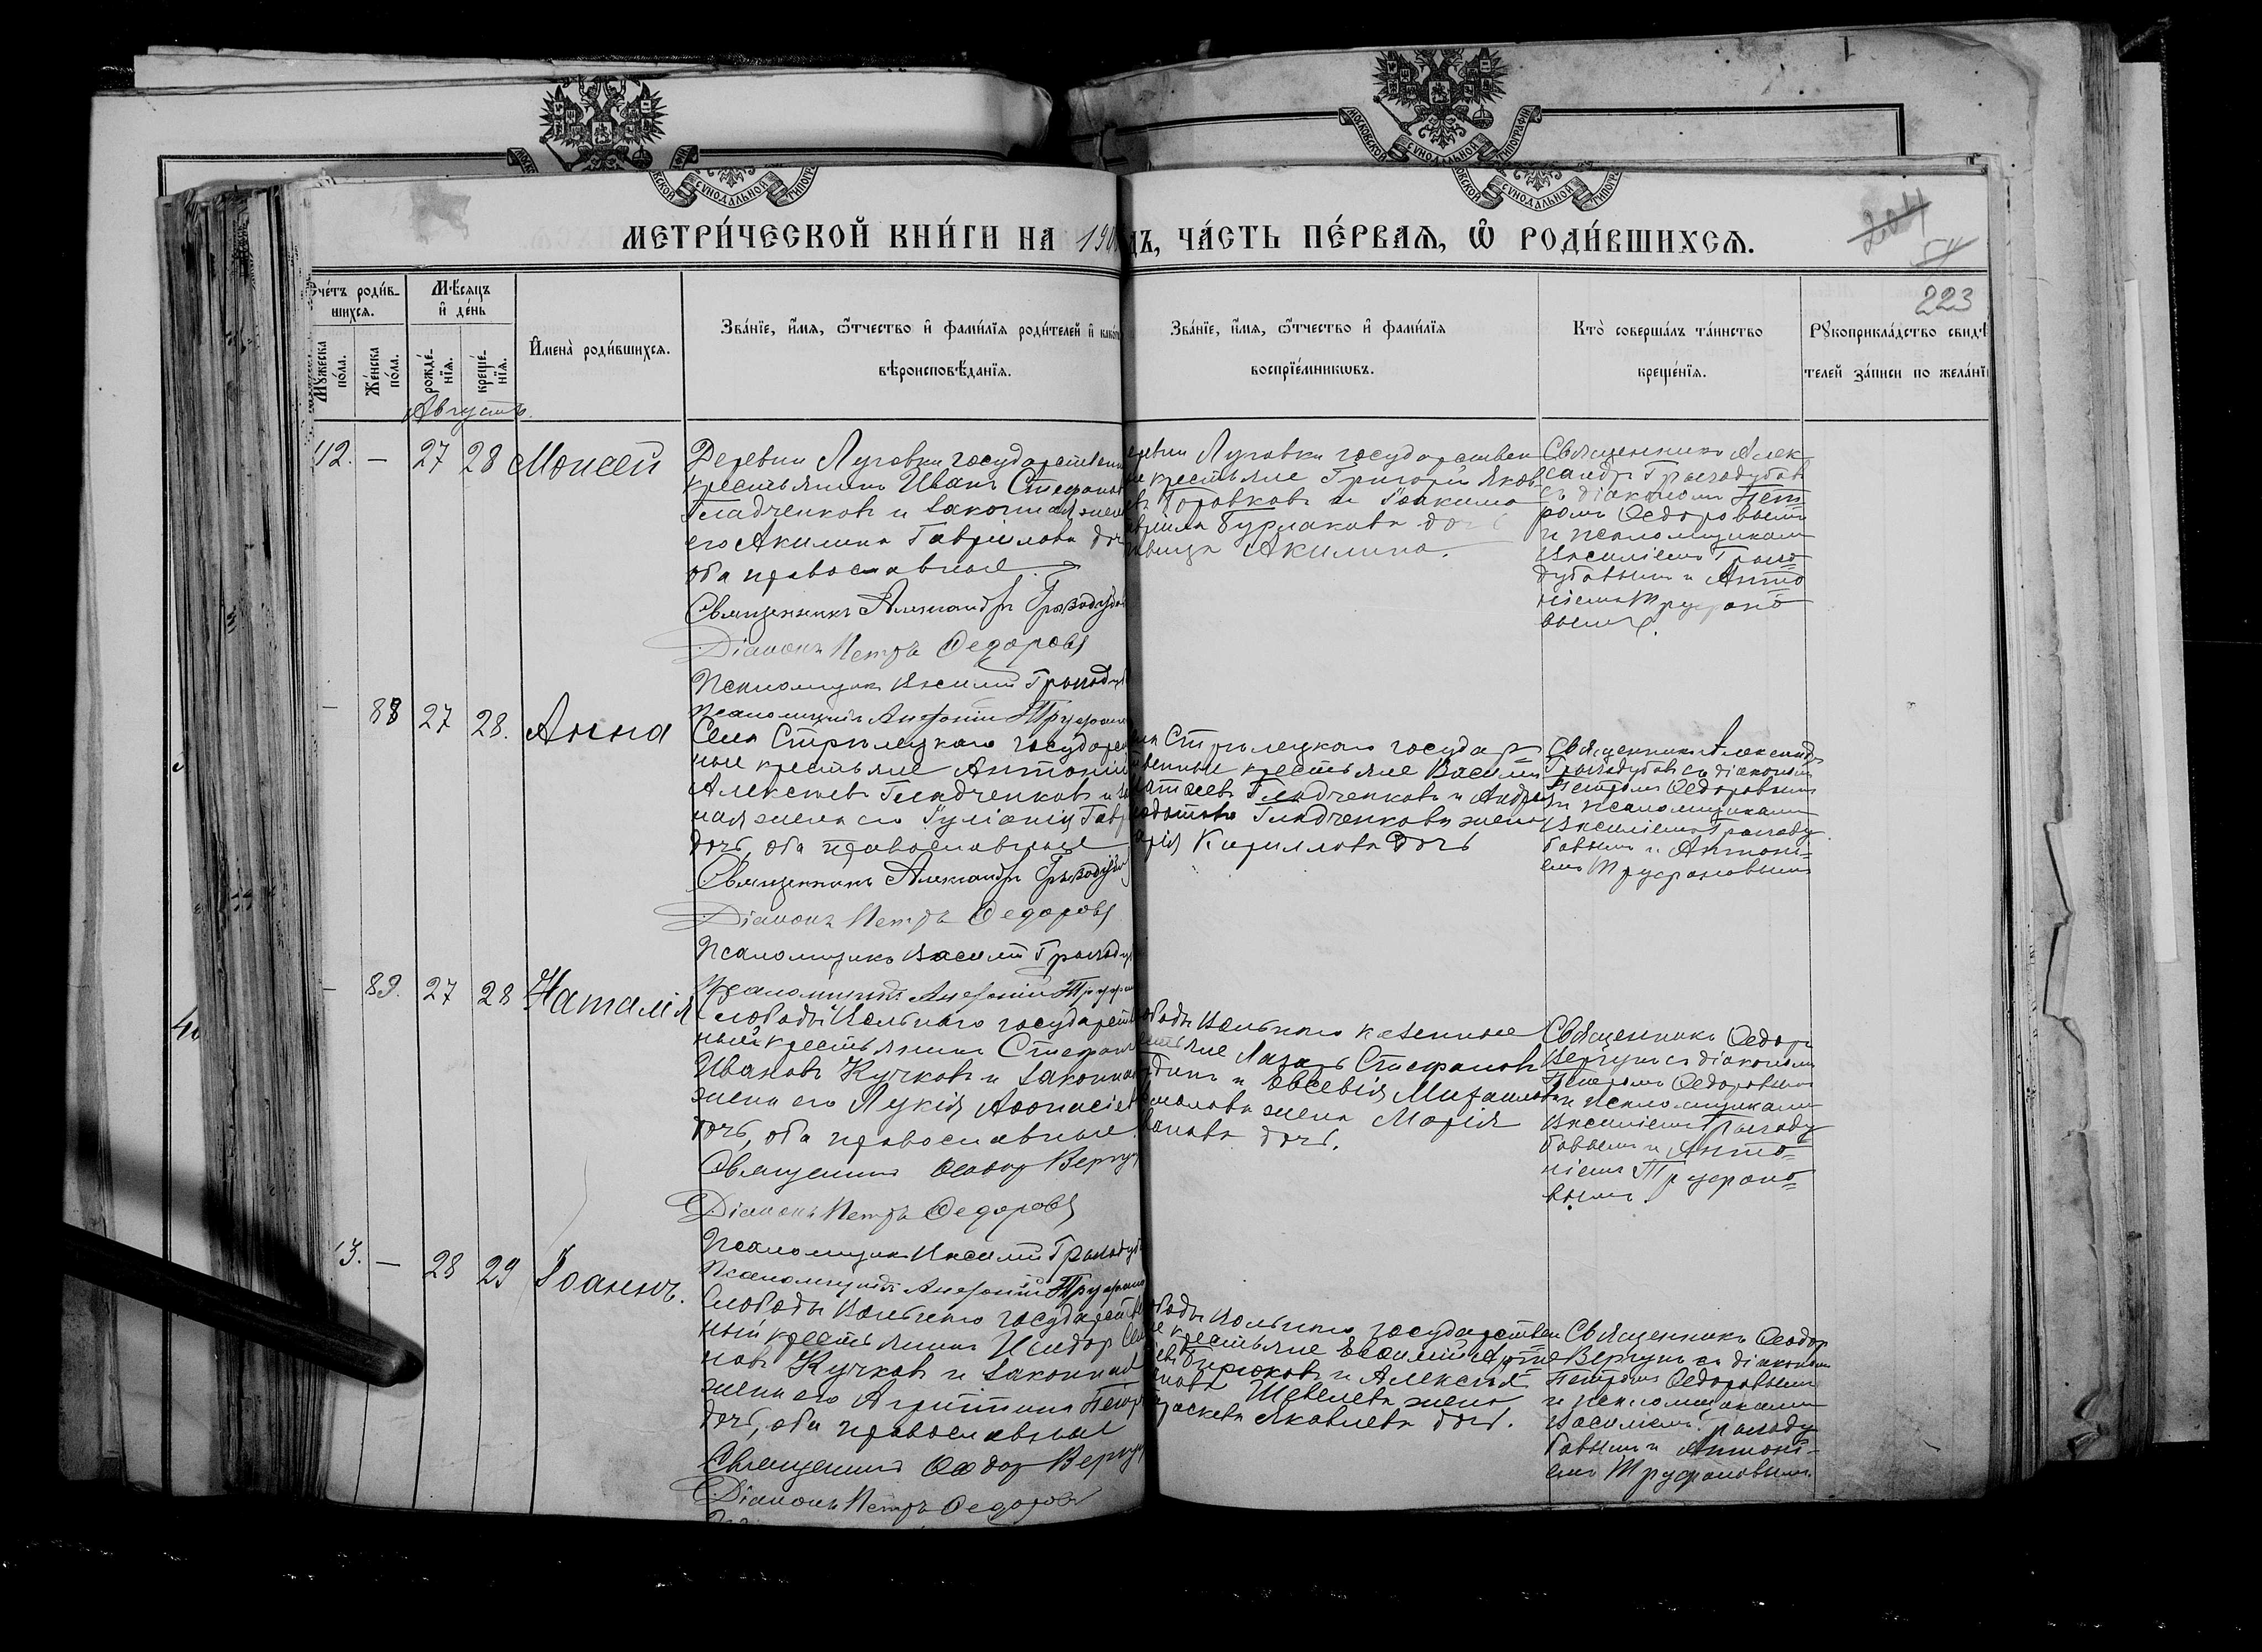 МОСКОВСКОЙ СУНОДАЛЬНОЙ ТИПОГРАФІИ
СУНОДАЛЬНОЙ
СУНОДАЛЬНОЙ
МЕТРИ́ЧЕСКОЙ КНИ́ГИ НА 190
ДЪ, ЧА́СТЬ ПЕ́РВАѦ, Ѽ РОДИ́ВШИХСѦ.
204
54
223
Сче́тъ роди́в-
шихсѧ.
Мѣ́сѧцъ
и҆ де́нь
Мꙋ́жеска
по́ла.
Же́нска
по́ла.
рожде́-
нїѧ.
креще́-
нїѧ.
И҆мена̀ роди́вшихсѧ.
Зва́нїе, и҆́мѧ, ѻ҆́тчество и҆ фами́лїѧ роди́телей и҆
вѣроисповѣ́данїѧ.
Зва́нїе, и҆́мѧ, ѻ҆́тчество и҆ фами́лїѧ
воспрїе́мникѡвъ.
Кто̀ соверша́лъ та́инство
креще́нїѧ.
Рꙋкоприкла́дство свидѣ́
телей за́писи по жела́нї
Августъ.
42. — 27 28 Моисей
Деревни Луговки государствен
крестьянинъ Иванъ Стефанов
Гладченковъ и законная жена
его Акилина Гаврилова доч
оба православные
Священникъ Александръ Грызодубов
Діаконъ Петръ Ѳедоровъ
Псаломщикъ Василій Грызодуб
Псаломщикъ Антоній Труфан
еревни Луговки государствен
ые крестьяне Григорій Яков
въ Коровковъ и Іоакима
Бурлакова дочь
вица Акилина.
Священникъ Алек
сандръ Грызодубовъ
съ діакономъ Пет
ромъ Ѳедоровымъ
и псаломщиками
Василіемъ Грызо
дубовымъ и Анто
ніемъ Труфано
вымъ.
— 88 27 28. Анна
Села Стрѣлецкаго государст
ные крестьяне Антоній
Алексѣевъ Гладченковъ и за
ная жена его Іуліанія Гавр
дочь, оба православные
Священникъ Александръ Грызодубов
Діаконъ Петръ Ѳедоровъ
Псаломщикъ Василій Грызодуб
Псаломщикъ Антоній Труфан
ла Стрѣлецкаго государ
твенные крестьяне Василій
атѳеевъ Гладченковъ и Андрея
Гладченкова жена
арія Кириллова дочь
Священникъ Александръ
Грызодубовъ съ діакономъ
Петромъ Ѳедоровымъ
и псаломщиками
Василіемъ Грызоду
бовымъ и Антоні=
емъ Труфановымъ
— 89. 27 28 Наталія
Слободы Вольнаго государств
ный крестьянинъ Стефанъ
Ивановъ Кучковъ и законная
жена его Лукія Аѳонасіев
дочь, оба православные
Священникъ Ѳеодоръ Вергун
Діаконъ Петръ Ѳедоровъ
Псаломщикъ Василій Грызодуб
Псаломщикъ Антоній Труфан
ободы Вольнаго казенные
стьяне Лазарь Стефановъ
динъ и Евсевія Михаилова
жена Марія
ванова дочь.
Священникъ Ѳедоръ
Вергунъ съ діакономъ
Петромъ Ѳедоровымъ
и псаломщиками
Василіемъ Грызоду
бовымъ и Анто=
ніемъ Труфано=
вымъ.
3. — 28 29 Іоаннъ.
Слободы Вольнаго государств
ный крестьянинъ Исидоръ
новъ Кучковъ и законная
жена его Агриппина Петр
дочь, оба православные
Священникъ Ѳеодоръ Вергун
Діаконъ Петръ Ѳедоровъ
ободы Вольнаго государствен
е крестьяне Евѳимій
евъ Бирюковъ и Алексѣя
нова Шевелева жена
раскева Яковлева дочь.
Священникъ Ѳеодоръ
Вергунъ съ діакономъ
Петромъ Ѳедоровымъ
и псаломщиками
Василіемъ Грызоду
бовымъ и Антоні-
емъ Труфановымъ.